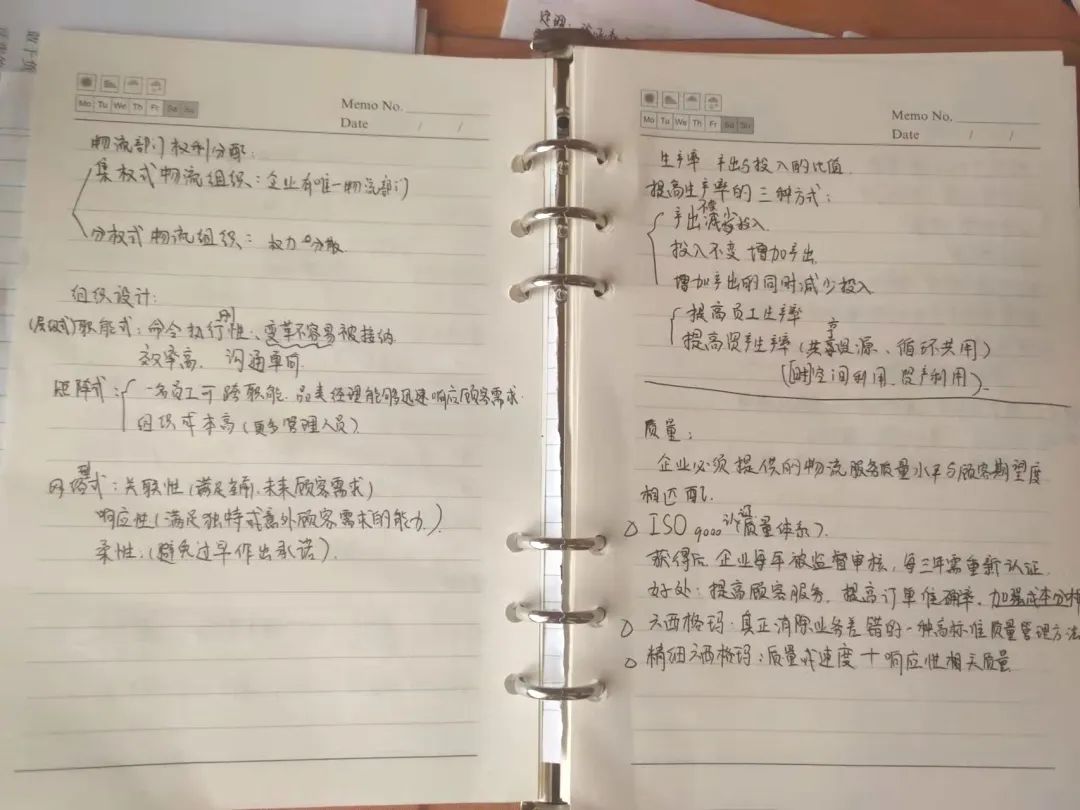 Mo Tu We Th Fr Sa Su
Memo No.
Date / /
物流部门权利分配:
集权式物流组织:企业有唯一物流部门
分权式物流组织:权力分散
组织设计:
(层级式)职能式:命令执行性、变革不容易被接纳
效率高 沟通单向
矩阵式:一名员工可跨职能.品类经理能够迅速响应顾客需求.
组织成本高(更多管理人员).
网络式:关联性(满足当前、未来顾客需求)
响应性(满足独特或意外顾客需求的能力)
柔性:(避免过早作出承诺).
Mo Tu We Th Fr Sa Su
Memo No.
Date / /
生产率 产出与投入的比值.
提高生产率的三种方式:
产出不变减少投入.
投入不变 增加产出
增加产出的同时减少投入
提高员工生产率
提高资产生产率(共享资源、循环共用)
(时空间利用、资产利用).
质量:
企业必须提供的物流服务质量水平与顾客期望度
相匹配.
ISO 9000认证(质量体系).
获得后,企业每年被监督审核,每三年需重新认证.
好处:提高顾客服务、提高订单准确率、加强成本分析
六西格玛:真正消除业务差错的一种高标准质量管理方法
精细六西格玛:质量或速度+响应性相关质量